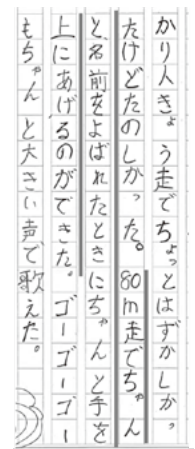 かり人きょう走でちょっとはずかしかっ
たけどたのしかった。80m走でちゃん
と名前をよばれたときにちゃんと手を
上にあげるのができた。ゴーゴーゴー
もちゃんと大きい声で歌えた。